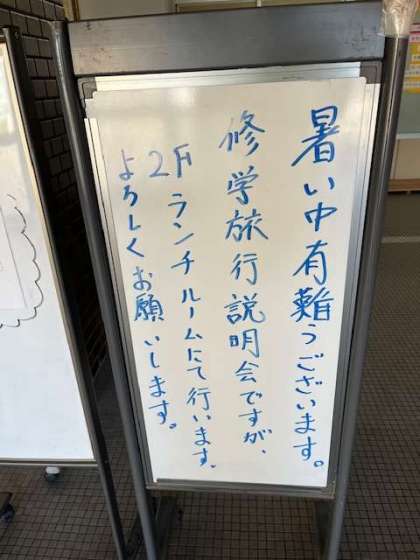 暑い中有難うございます。
修学旅行説明会ですが、
2Fランチルームにて行います。
よろしくお願いします。